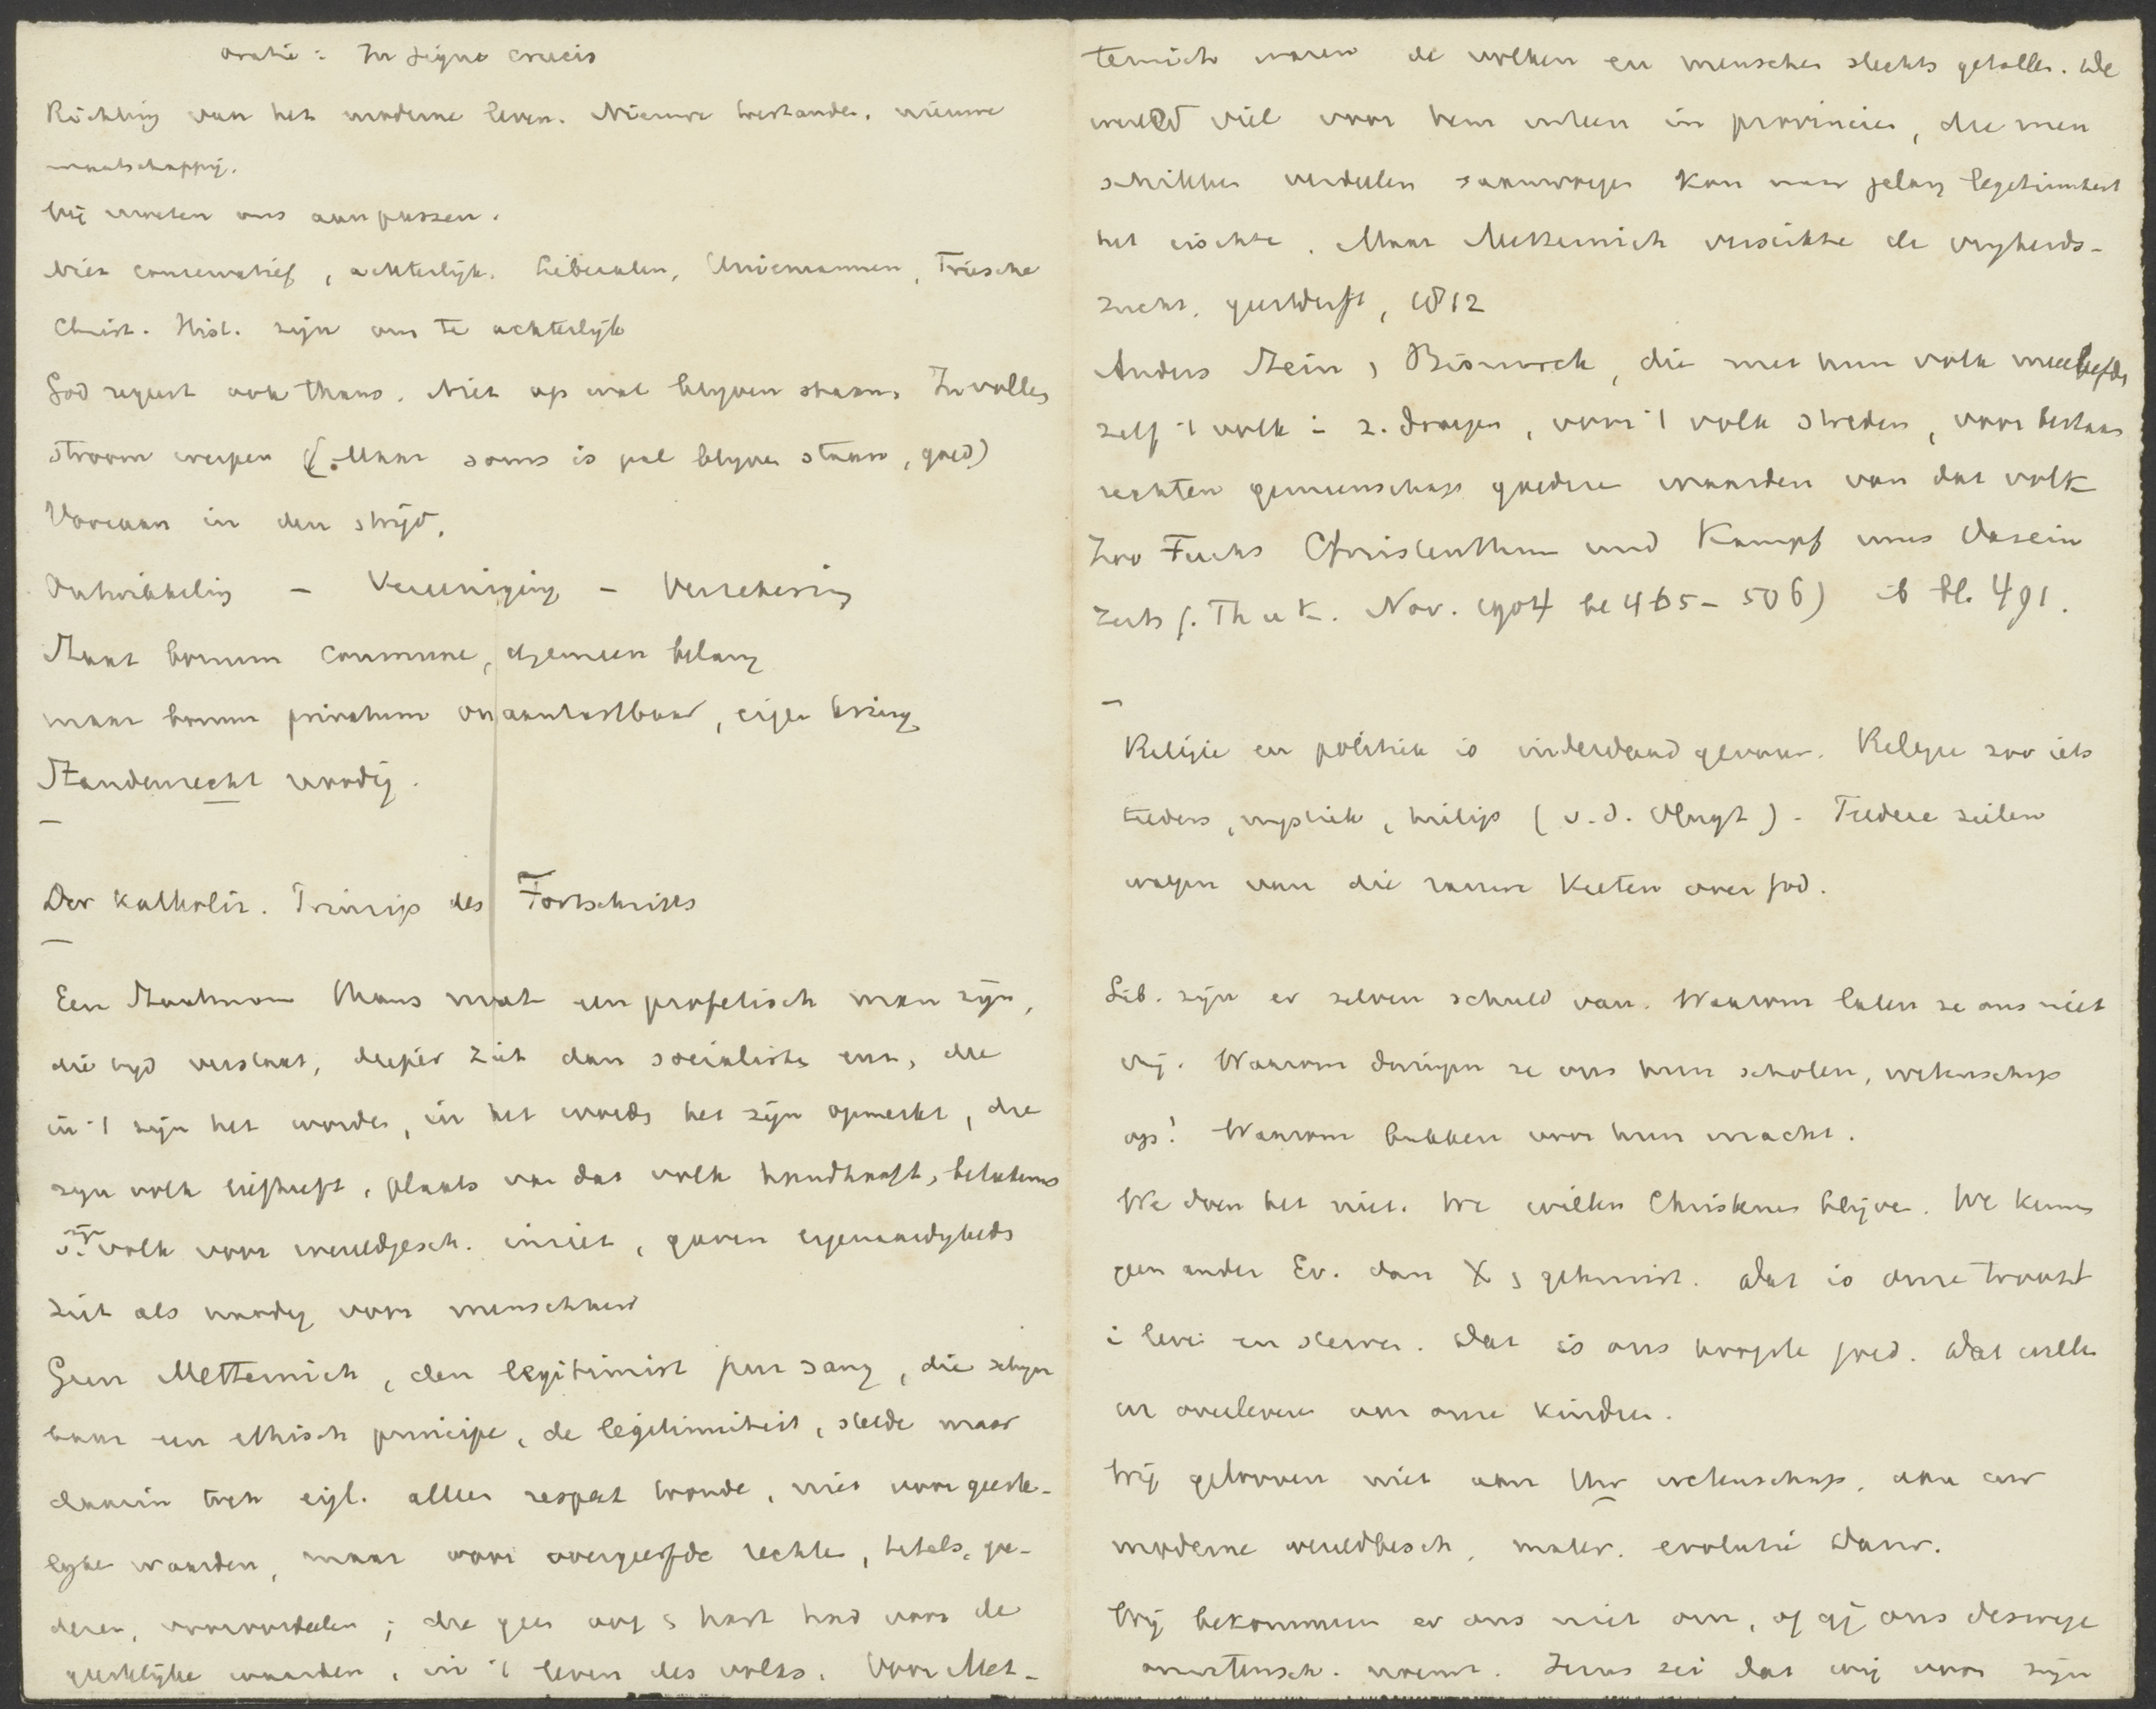 Oratie: In signo crucis
Richting van het moderne leven. Nieuwe toestanden, nieuwe
maatschappij.
Wij moeten ons aanpassen.
Niet conservatief, achterlijk. Liberalen, Uniemannen, Friesche
Christ. Hist. zijn ons te achterlijk
God regeert ook thans. Niet op wal blijven staan. In vollen
stroom werpen (. Maar soms is pal blijven staan, goed)
Vooraan in den strijd.
Ontwikkeling – Vereeniging – Verzekering
Staat bonum commune, algemeen belang
maar bonum privatum onaantastbaar, eigen kring
Standenrecht noodig.
—
Der Katholiz. Prinzip des Fortschritts
—
Een Staatsman thans moet een profetisch man zijn,
die tijd verstaat, dieper ziet dan socialisten enz, die
in 't zijn het worden, in het worden het zijn opmerkt, die
zijn volk liefheeft, plaats van dat volk handhaaft, beteekenis
v. zijn volk voor wereldgesch. inziet, gaven eigenaardigheds
ziet als noodig voor menschheid
Geen Metternich, den legitimist pur sang, die schijn
baar een ethisch principe, de legitimiteit, stelde maar
daarin toch eigl. alleen respect toonde, niet voor geeste-
lijke waarden, maar voor overgeërfde rechten, titels, goe-
deren, vooroordeelen; die geen oog & hart had voor de
geestelijke waarden, in 't leven des volks. Voor Met-
ternich waren de volken en menschen slechts getallen. De
wereld viel voor hem uiteen in provincies, die men
schikken verdeelen samenvoegen kon naar gelang legitimiteit
het eischte. Maar Metternich verstikte de vrijheids-
zucht, geestdrift, 1812
Anders Stein, Bismarck, die met hun volk meeleefden
zelf 't volk i. z. droegen, voor 't volk streden, voor bestaan
rechten gemeenschap goedere waarden van dat volk
Zoo Fuchs Christenthum und Kampf ums Dasein
Zeits f. Th u K. Nov. 1904 bl 465 – 506) ib bl. 491.
—
Religie en politiek is inderdaad gevaar. Religie zoo iets
teeders, mystiek, heiligs (v. d. Vlugt). Teedere zielen
walgen van die ruwe keeten over God.
Lib. zijn er zelven schuld van. Waarom laten ze ons niet
vrij. Waarom dringen ze ons hun scholen, wetenschap
op! Waarom bukken voor hun macht.
We doen het niet. We willen Christenen blijven. We kennen
geen ander Ev. dan X s gekruist. Dat is onze troost
i leven en sterven. Dat is ons hoogste goed. Dat willen
we overleveren aan onze kinderen.
Wij gelooven niet aan Uw wetenschap, aan uw
moderne wereldbesch, mater. evolutie Darw.
Wij bekommeren er ons niet om, of gij ons deswege
onwetensch. noemt. Jezus zei dat wij voor zijn